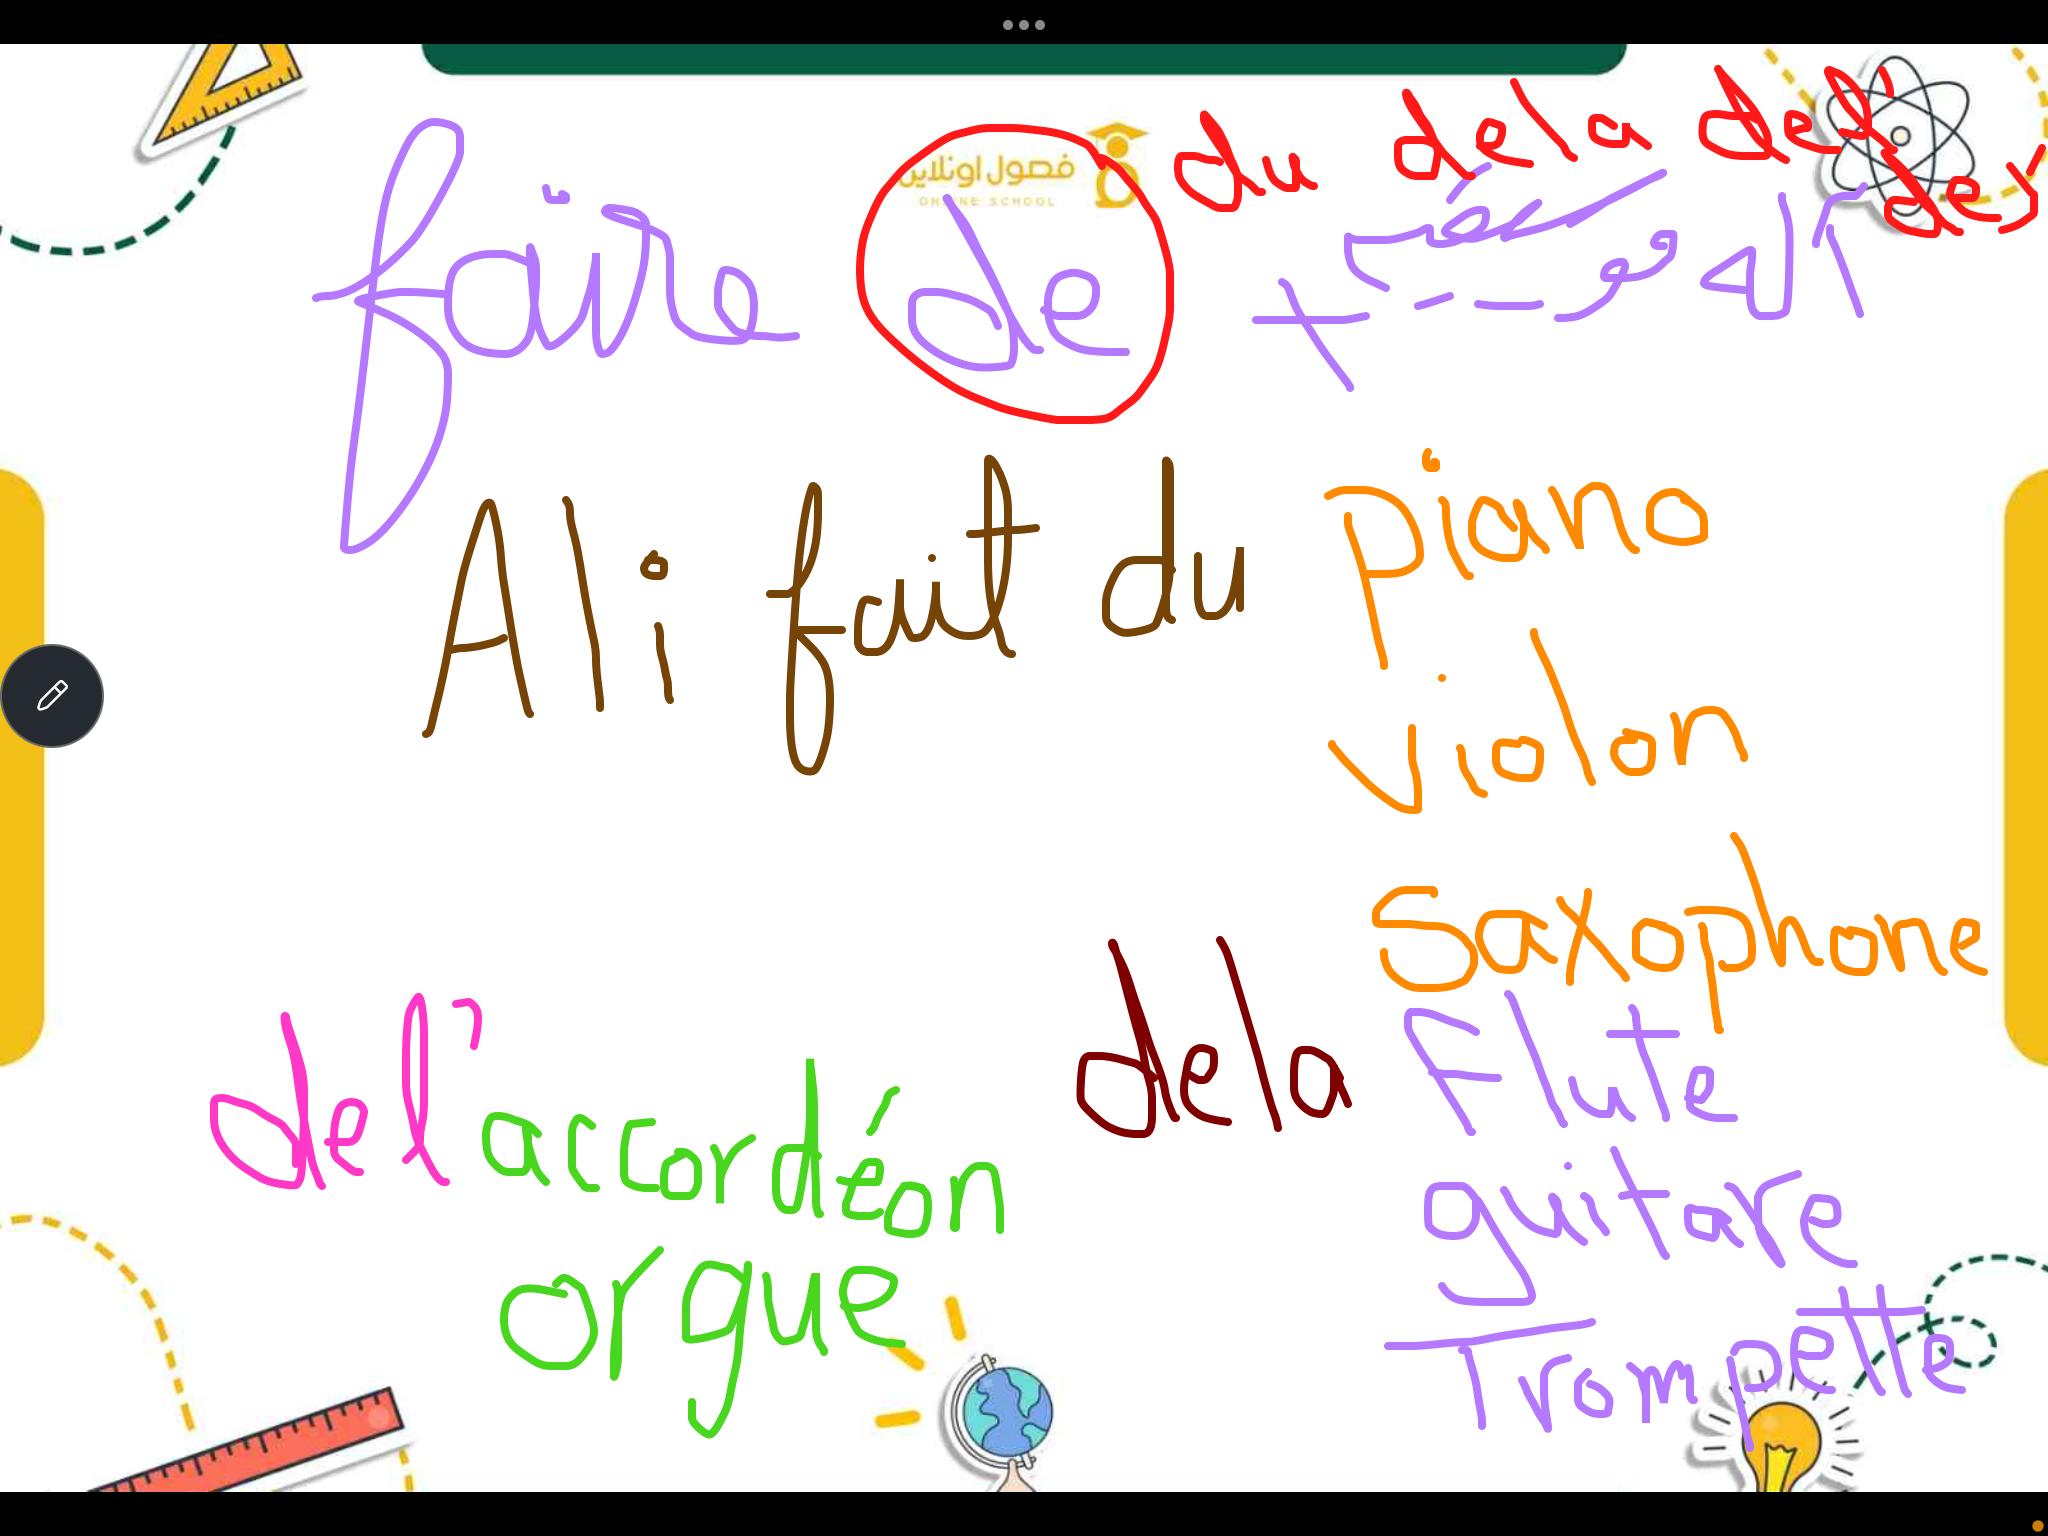 فصول اونلاين
ONLINE SCHOOL
du de la de l'
des
faire de + آلة موسيقية
Ali fait du piano
violon
saxophone
de la Flute
guitare
Trompette
de l'accordéon
orgue